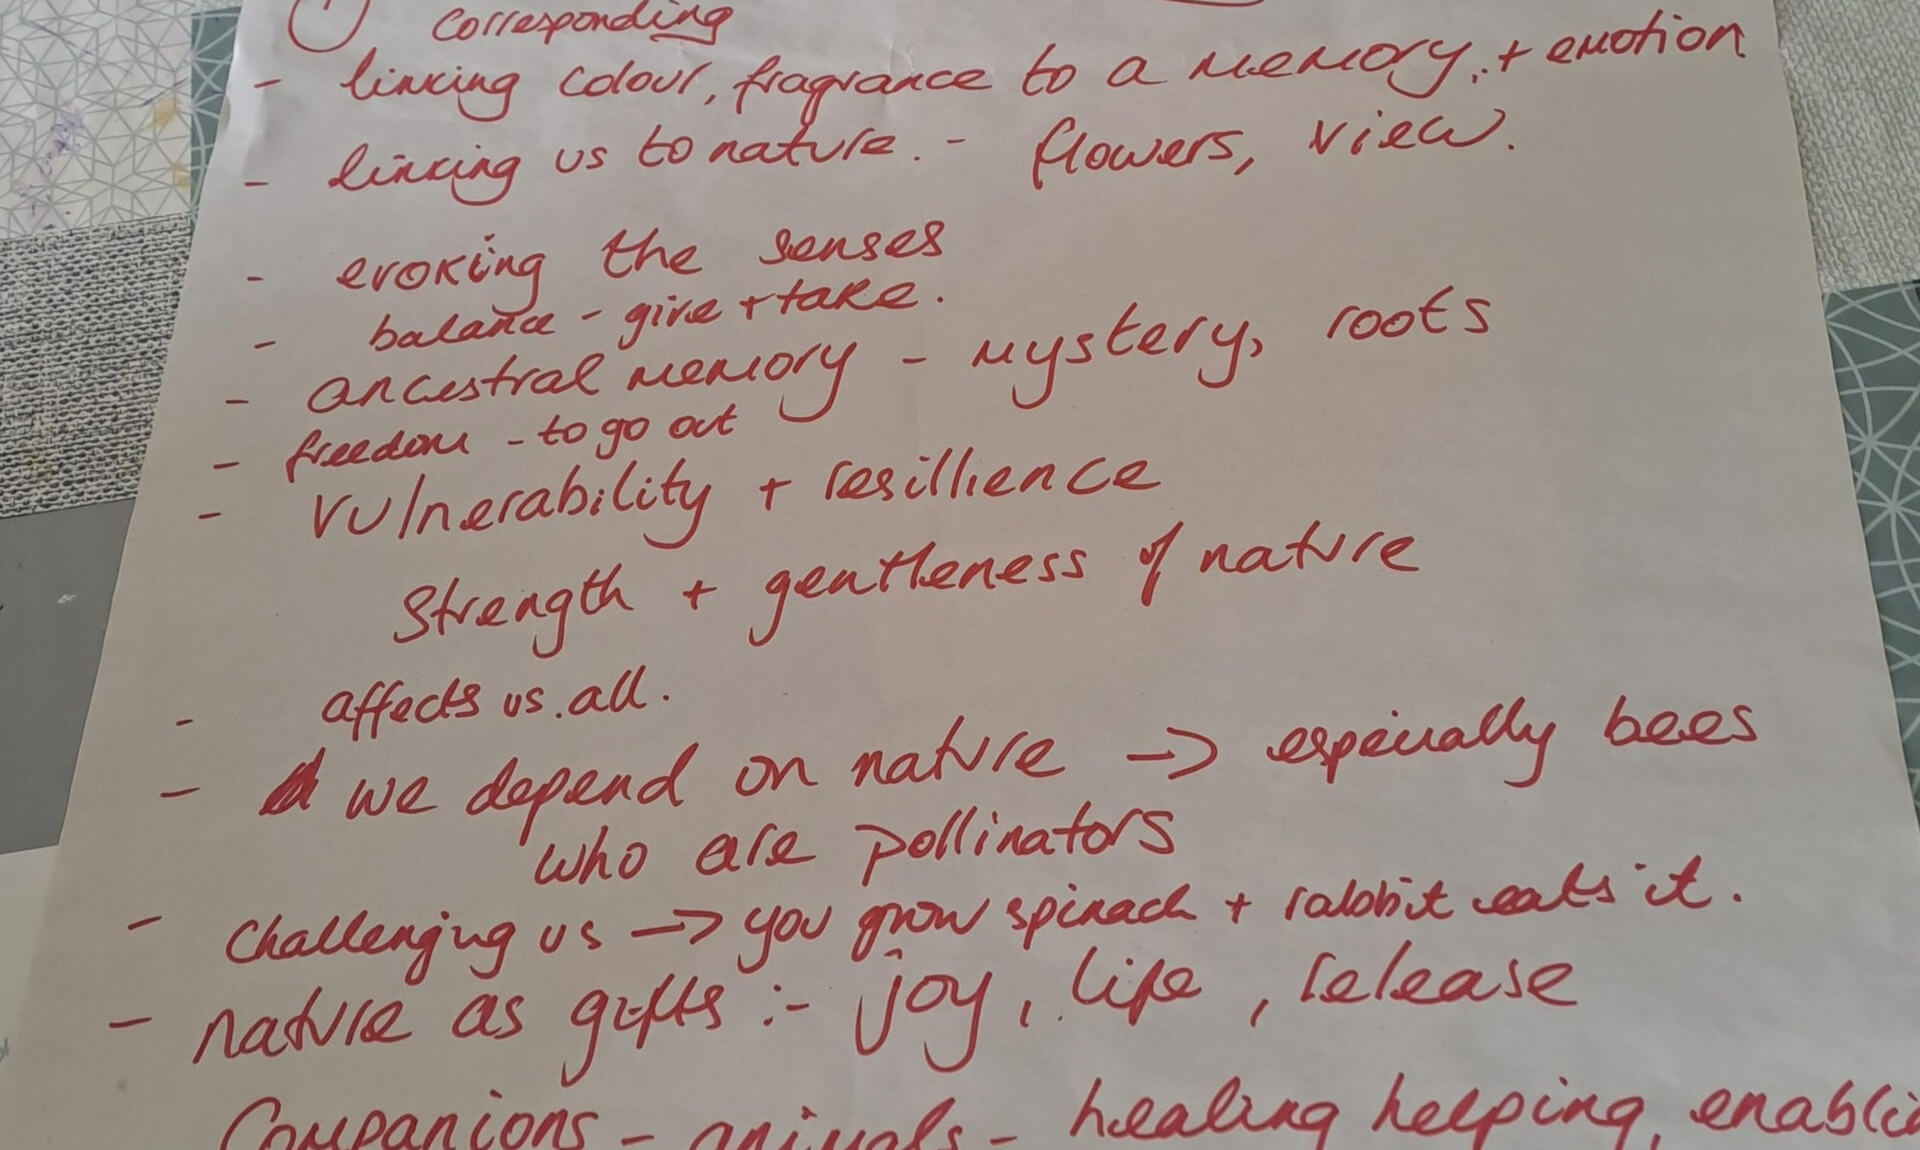 ① corresponding
- linking colour, fragrance to a memory, + emotion
- linking us to nature. - flowers, view.
- evoking the senses
- balance - give + take.
- ancestral memory - mystery, roots
- freedom - to go out
- Vulnerability + resillience
Strength + gentleness of nature
- affects us all.
- we depend on nature -> especially bees
who are pollinators
- challenging us -> you grow spinach + rabbit eats it.
- nature as gifts :- joy, life, release
Companions - animals - healing helping, enabli